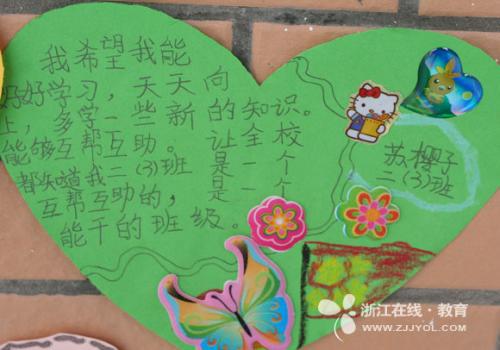 我希望我能
好好学习，天天向
上，多学一些新的知识。
能够互帮互助。让全校
都知道我二(3)班是一个
互帮互助的，是一个
能干的班级。
苏樱子
二(3)班
浙江在线·教育
WWW.ZJJYOL.COM